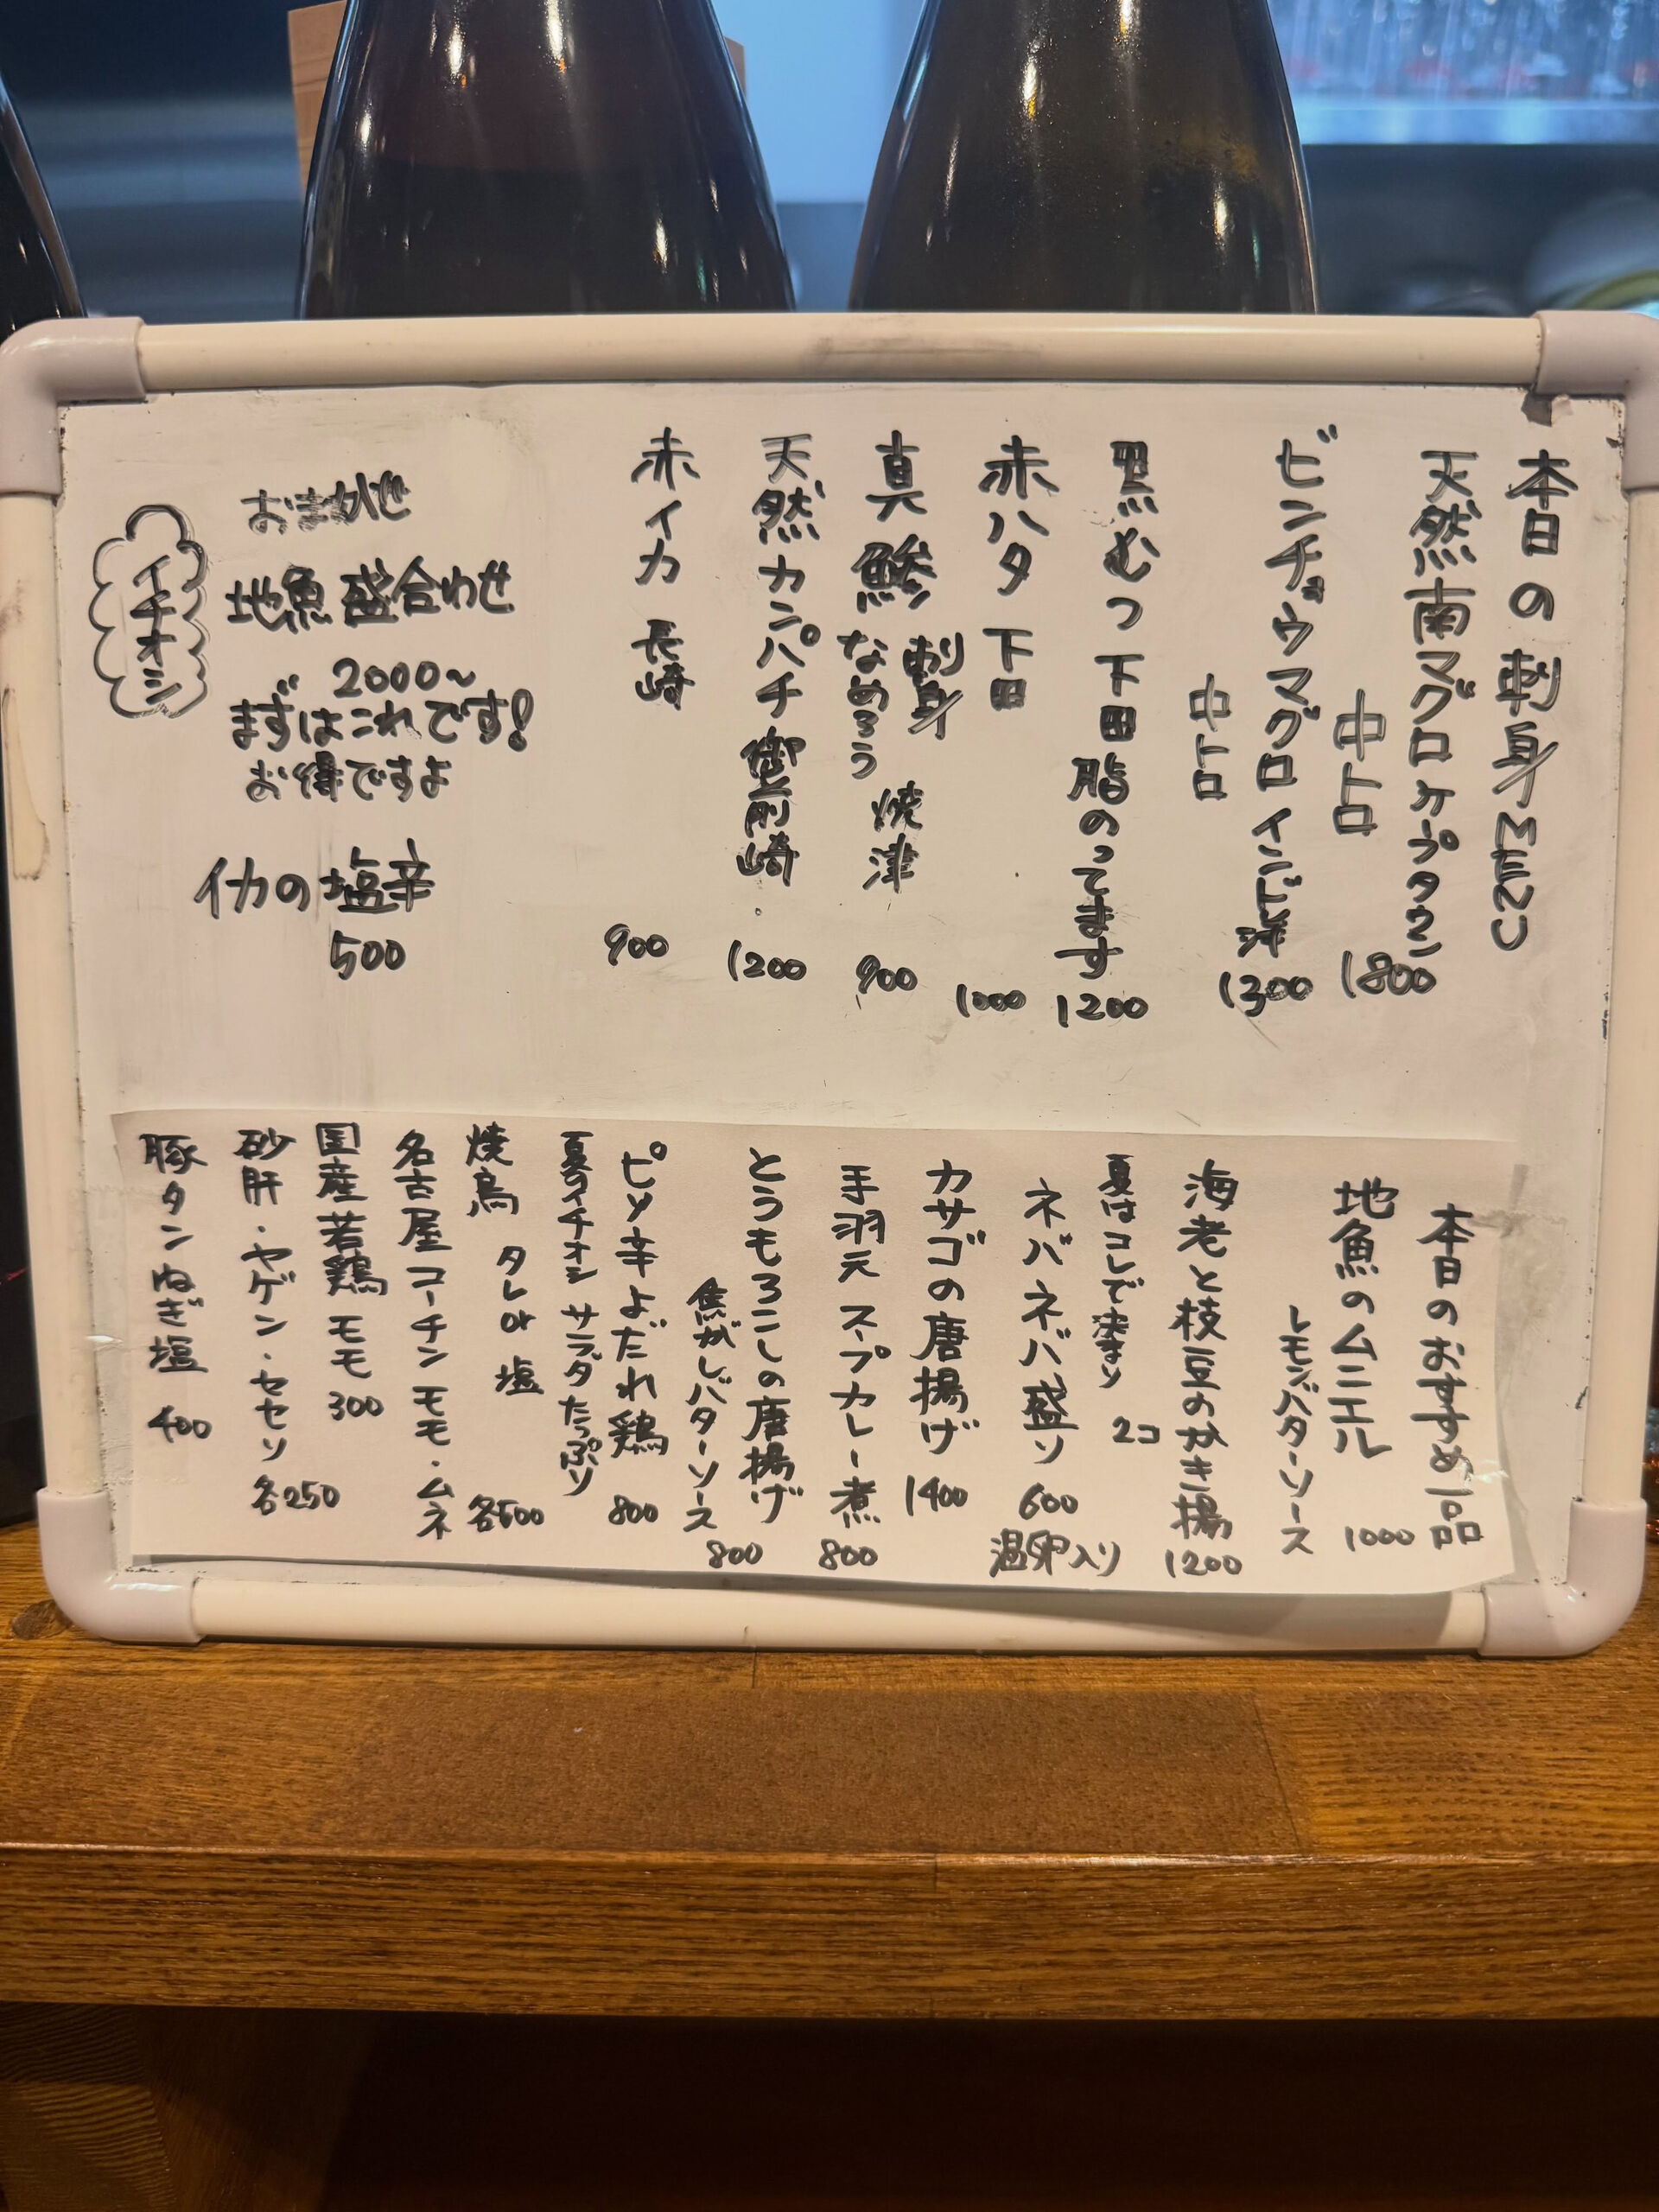 本日の刺身MENU
天然南マグロ ケープタウン
中トロ 1800
ビンチョウマグロ インド洋
中トロ 1300
黒むつ 下田 脂のってます 1200
赤ハタ 下田 1000
真鯵 刺身 なめろう 焼津 900
天然カンパチ 御前崎 1200
赤イカ 長崎 900
おまかせ
地魚盛合わせ
2000〜
まずはこれです!
お得ですよ
イチオシ
イカの塩辛
500
本日のおすすめ一品
地魚のムニエル 1000
レモンバターソース
海老と枝豆のかき揚 1200
2コ
夏はコレで決まり
ネバネバ盛り 600
温卵入り
カサゴの唐揚げ 1400
手羽元スープカレー煮 800
とうもろこしの唐揚げ
焦がしバターソース 800
ピリ辛よだれ鶏 800
夏イチオシ サラダたっぷり
焼鳥 タレor塩
名古屋コーチン モモ・ムネ 各500
国産若鶏 モモ 300
砂肝・ヤゲン・セセリ 各250
豚タンねぎ塩 400